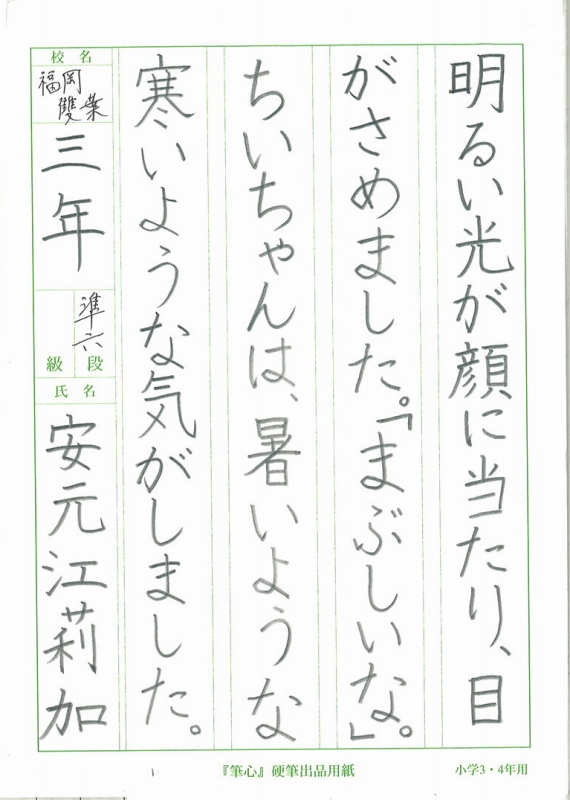 明るい光が顔に当たり、目
がさめました。「まぶしいな。」
ちいちゃんは、暑いような
寒いような気がしました。
校名
福岡
雙葉
三年
準六
級段
氏名
安元江莉加
『筆心』硬筆出品用紙
小学3・4年用